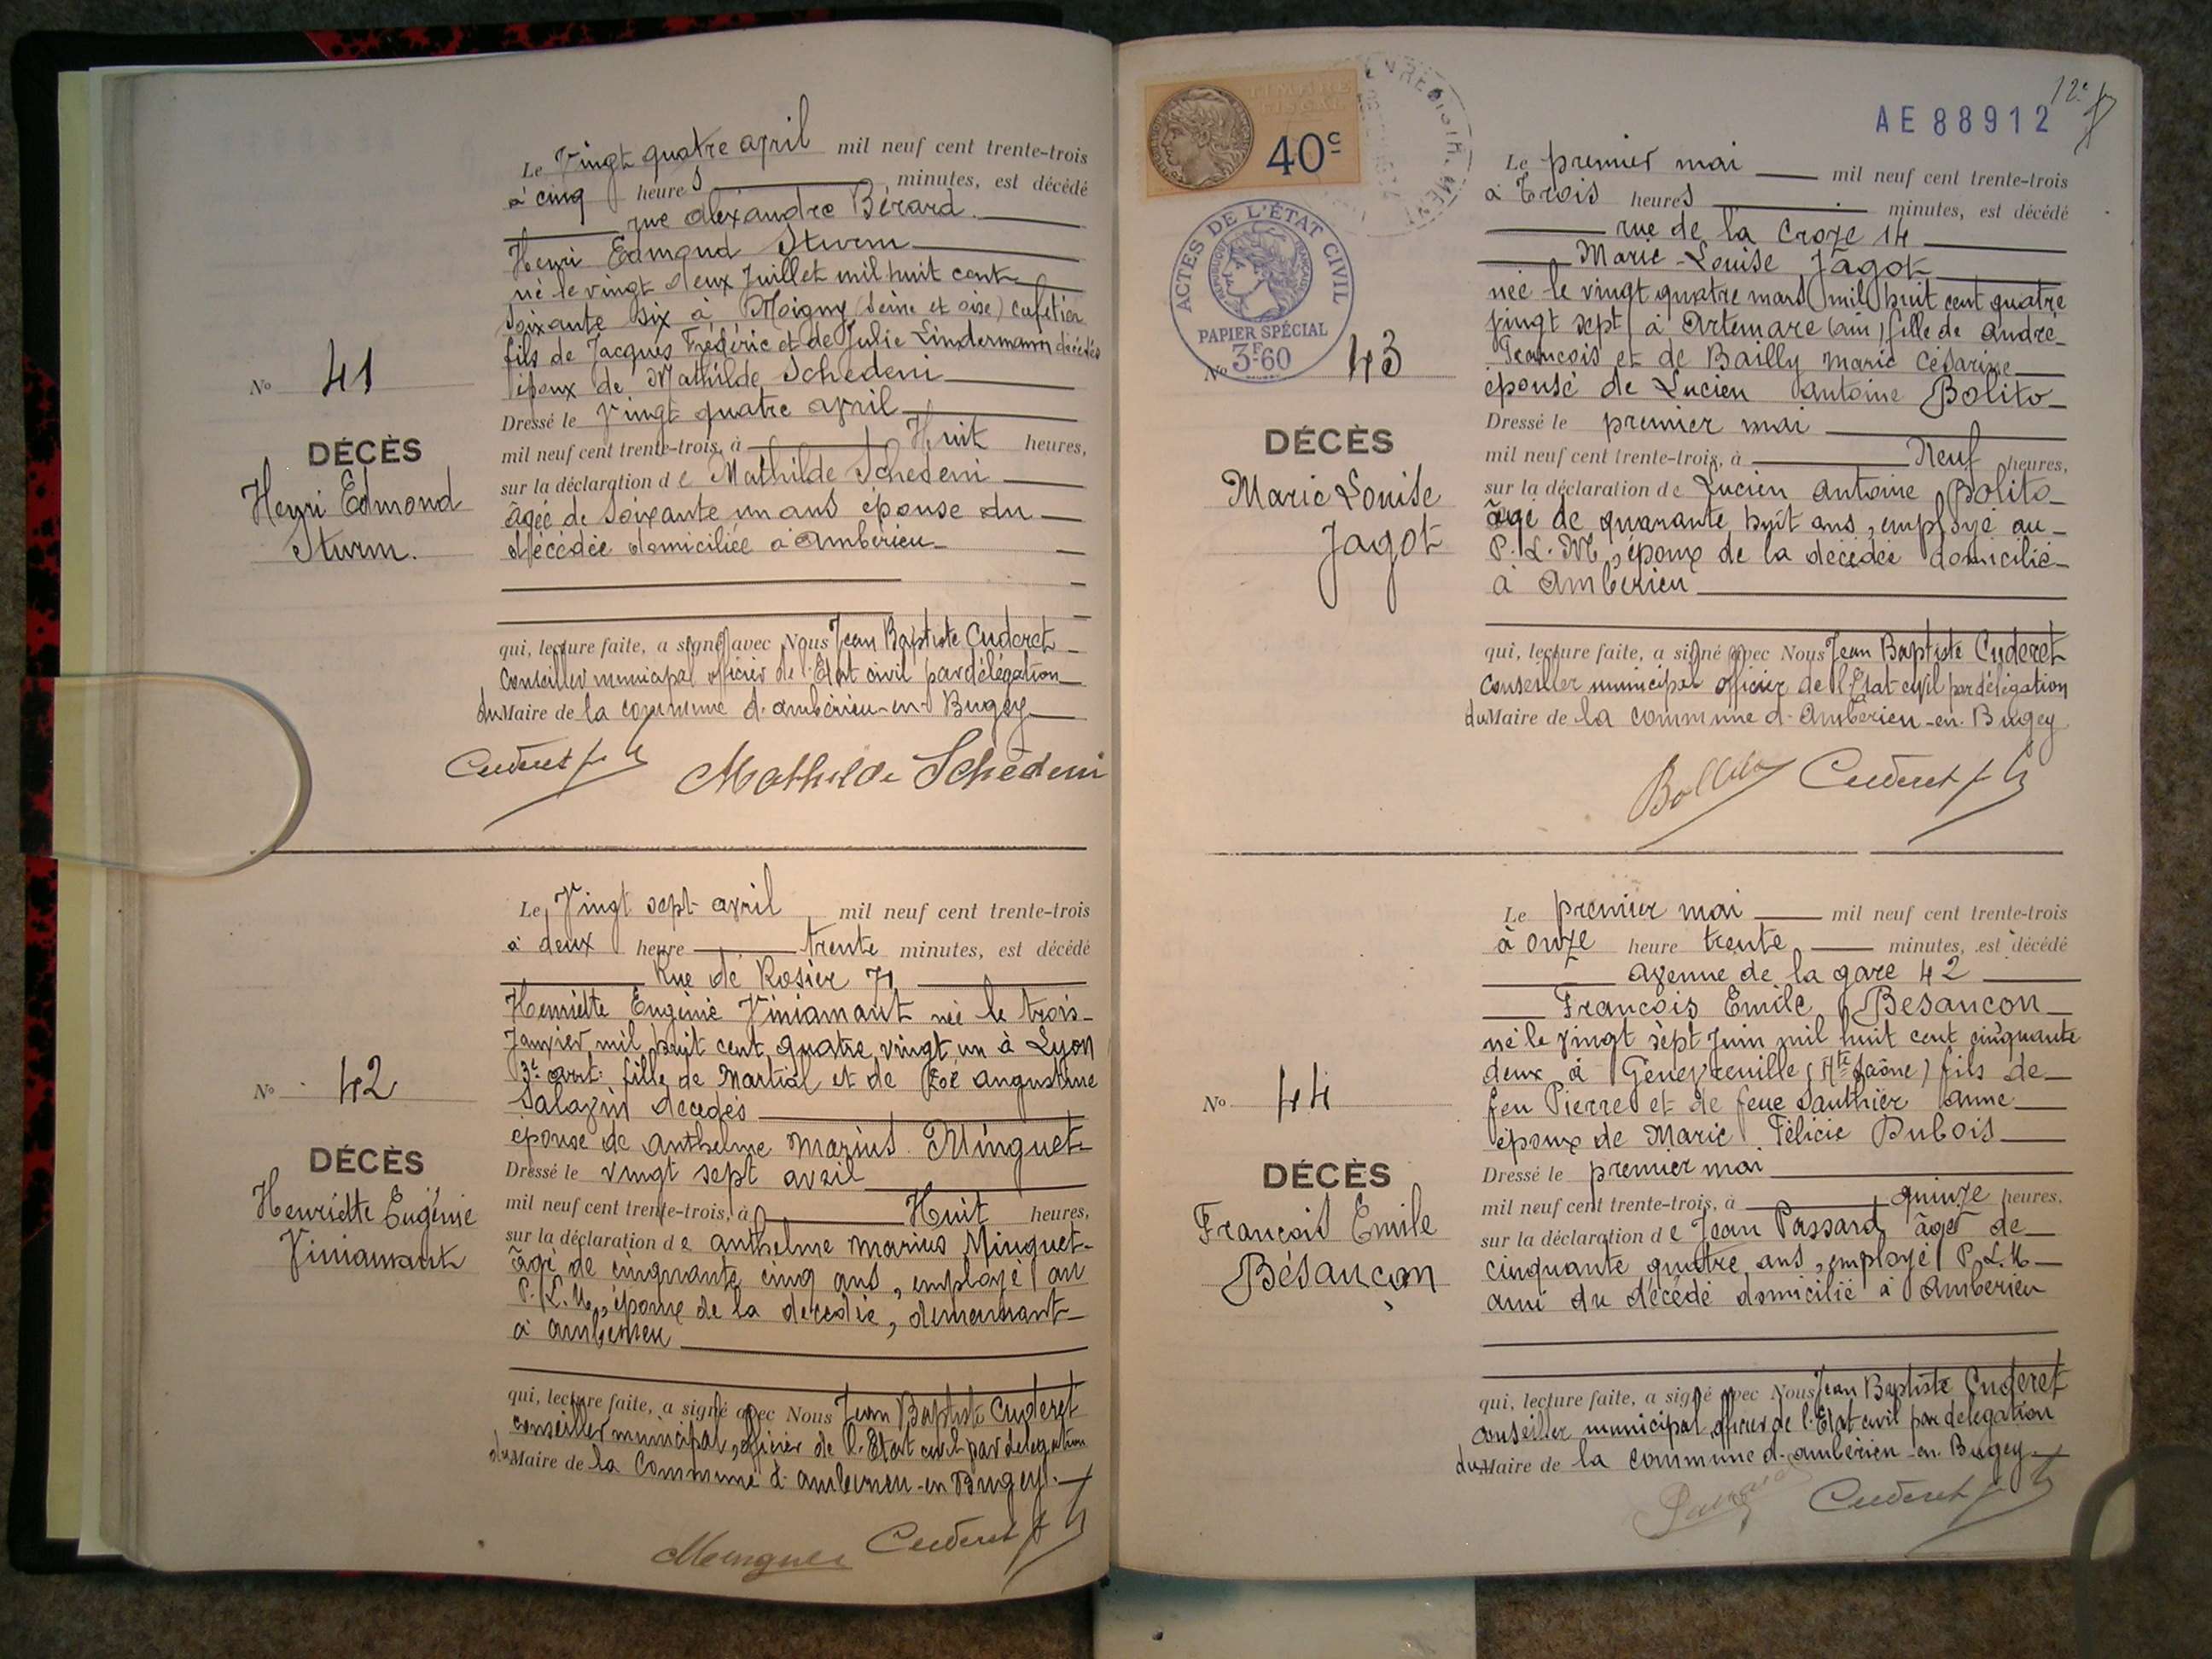 Le Vingt quatre avril mil neuf cent trente-trois
à cinq heures minutes, est décédé
rue Alexandre Bérard.
Henri Edmond Sturm
né le vingt deux Juillet mil huit cent
soixante six à Moigny (Seine et oise) cafetier
fils de Jacques Frédéric et de Julie Lindermann décédés
époux de Mathilde Schedeni
Dressé le vingt quatre avril
mil neuf cent trente-trois, à Huit heures,
sur la déclaration de Mathilde Schedeni
âgée de soixante un ans épouse du
décédée domiciliée à Ambérieu
qui, lecture faite, a signé avec Nous Jean Baptiste Cuderet
Conseiller municipal officier de l'Etat civil par délégation
du Maire de la commune d'ambérieu-en-Bugey
Cuderet Mathilde Schedeni
No 41
DÉCÈS
Henri Edmond
Sturm.
Le Vingt sept avril mil neuf cent trente-trois
à deux heure trente minutes, est décédé
Rue de Rosier 71
Henriette Eugénie Viniamant née le trois
Janvier mil huit cent quatre vingt un à Lyon
3e arrt. fille de Martial et de Zoé augustine
Salazin décédés
épouse de anthelme marius Minguet
Dressé le vingt sept avril
mil neuf cent trente-trois, à Huit heures,
sur la déclaration de anthelme marius Minguet
âgé de cinquante cinq ans, employé au
P.L.M., époux de la décédée, demeurant
à ambérieu
qui, lecture faite, a signé avec Nous Jean Baptiste Cuderet
conseiller municipal, officier de l'Etat civil par délégation
du Maire de la commune d'ambérieu-en-Bugey.
Cuderet
No 42
DÉCÈS
Henriette Eugénie
Viniamant
TIMBRE
FISCAL
40c
ACTES DE L'ÉTAT CIVIL
RÉPUBLIQUE FRANÇAISE
PAPIER SPÉCIAL
3F60
AE 88912
12e
Le premier mai mil neuf cent trente-trois
à Trois heures minutes, est décédé
rue de la Croze 14
Marie-Louise Jagot
née le vingt quatre mars mil huit cent quatre
vingt sept à Artemare (ain) fille de andré
François et de Bailly marie Césarine
épouse de Lucien Antoine Bolito
Dressé le premier mai
mil neuf cent trente-trois, à Neuf heures,
sur la déclaration de Lucien Antoine Bolito
âgé de quarante huit ans, employé au
P.L.M, époux de la décédée domicilié
à Ambérieu
qui, lecture faite, a signé avec Nous Jean Baptiste Cuderet
Conseiller municipal officier de l'Etat civil par délégation
du Maire de la commune d'Ambérieu-en-Bugey
Cuderet
No 43
DÉCÈS
Marie Louise
Jagot
Le premier mai mil neuf cent trente-trois
à onze heure trente minutes, est décédé
avenue de la gare 42
François Emile Besançon
né le vingt sept Juin mil huit cent cinquante
deux à Genevreuille (Hte Saône) fils de
feu Pierre et de feue Sauthier Anne
époux de Marie Félicie Dubois
Dressé le premier mai
mil neuf cent trente-trois, à quinze heures,
sur la déclaration de Jean Passard âgé de
cinquante quatre ans, employé P.L.M
ami du décédé domicilié à Ambérieu
qui, lecture faite, a signé avec Nous Jean Baptiste Cuderet
conseiller municipal officier de l'Etat civil par délégation
du Maire de la commune d'ambérieu-en-Bugey
Cuderet
No 44
DÉCÈS
François Emile
Bésançon